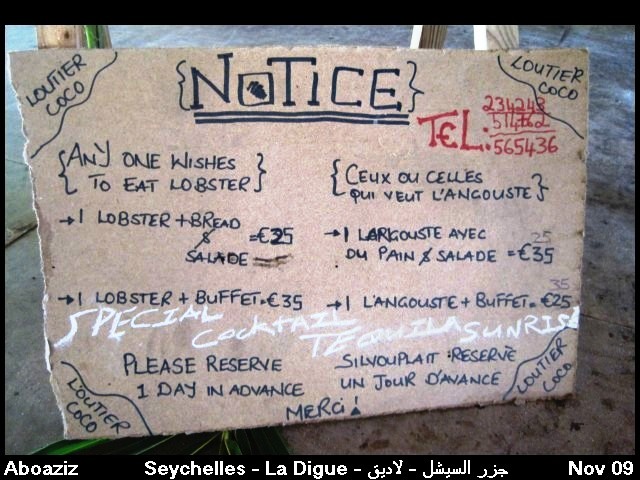 LOUTIER COCO
{NOTICE}
LOUTIER COCO
TEL: 234248
514762
565436
{ANY ONE WISHES
TO EAT LOBSTER}
→ 1 LOBSTER + BREAD
& = €25
SALADE
→ 1 LOBSTER + BUFFET = €35
{CEUX OU CELLES
QUI VEUT L'ANGOUSTE}
→ 1 LARGOUSTE AVEC 25
DU PAIN & SALADE = €35
35
→ 1 L'ANGOUSTE + BUFFET = €25
SPECIAL COCKTAIL TEQUILA SUNRISE
PLEASE RESERVE
1 DAY IN ADVANCE
SILVOUPLAIT : RESERVE
UN JOUR D'AVANCE
MERCi !
LOUTIER COCO
LOUTIER COCO
Aboaziz Seychelles - La Digue - جزر السيشل - لاديق Nov 09